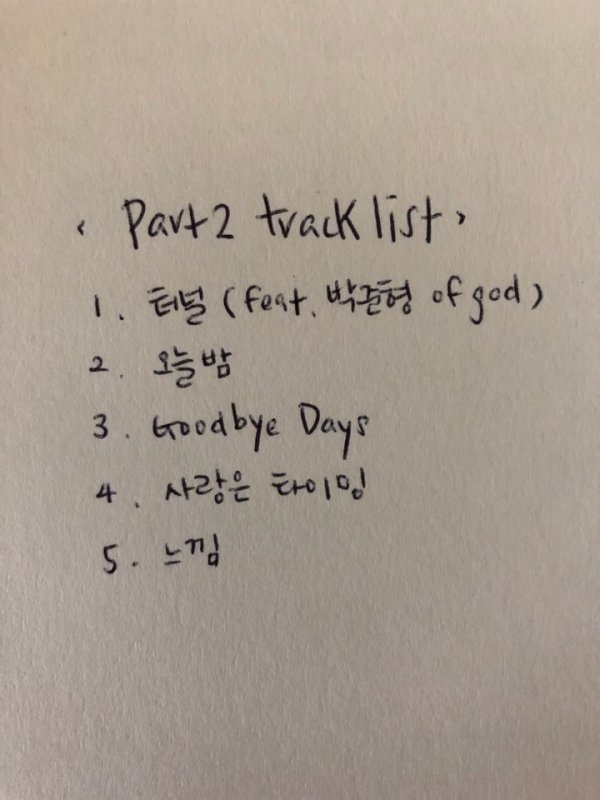 < Part2 track list >
1. 터널 (feat. 박준형 of god)
2. 오늘밤
3. Goodbye Days
4. 사랑은 타이밍
5. 느낌